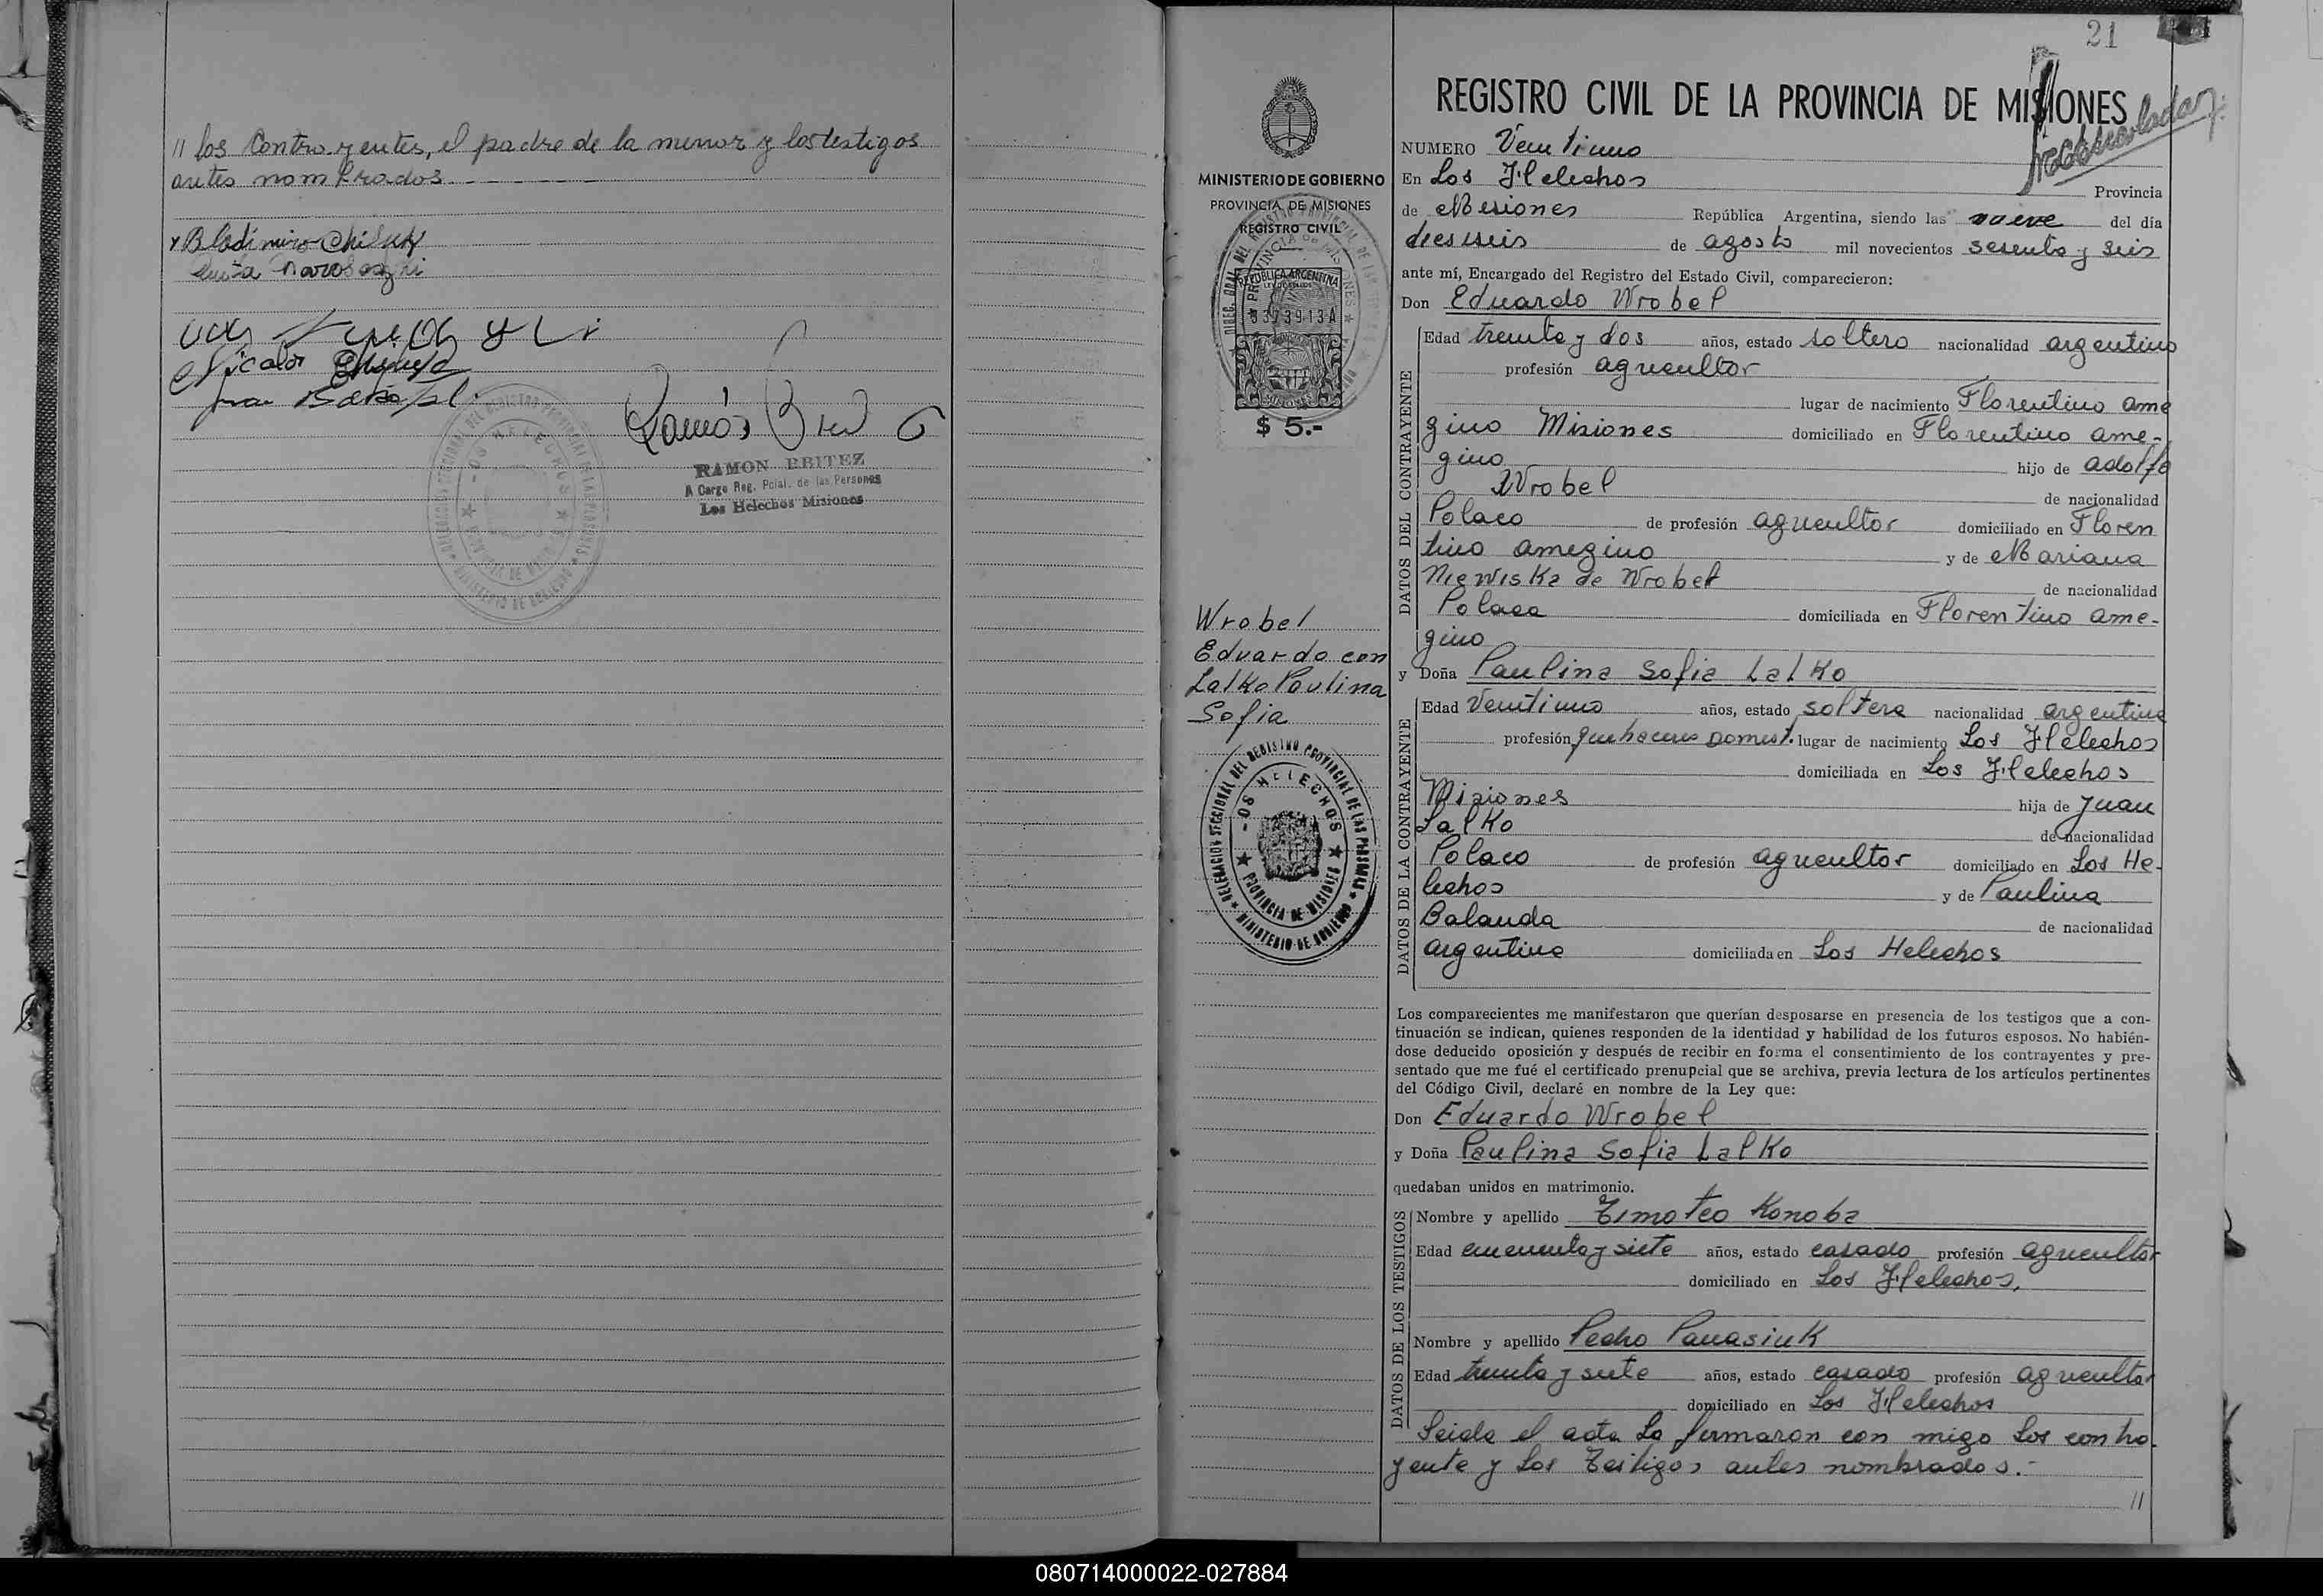 // los Contrayentes, el padre de la menor y los testigos
antes nombrados
RAMON BRITEZ
A Cargo Reg. Pcial. de las Personas
Los Helechos Misiones
21
MINISTERIO DE GOBIERNO
PROVINCIA DE MISIONES
REGISTRO CIVIL
REPUBLICA ARGENTINA
$ 5.-
Wrobel
Eduardo con
Lalko Paulina
Sofia
DELEGACION SECCIONAL DEL REGISTRO PROVINCIAL DE LAS PERSONAS
LOS HELECHOS
PROVINCIA DE MISIONES
MINISTERIO DE GOBIERNO
REGISTRO CIVIL DE LA PROVINCIA DE MISIONES
NUMERO Veintiuno
En Los Helechos Provincia
de Misiones República Argentina, siendo las nueve del día
dieciseis de agosto mil novecientos sesenta y seis
ante mí, Encargado del Registro del Estado Civil, comparecieron:
Don Eduardo Wrobel
DATOS DEL CONTRAYENTE
Edad treinta y dos años, estado soltero nacionalidad argentino
profesión agricultor
lugar de nacimiento Florentino ame
gino Misiones domiciliado en Florentino ame-
gino hijo de adolfo
Wrobel de nacionalidad
Polaco de profesión agricultor domiciliado en Floren
tino amegino y de Mariana
Niewiska de Wrobel de nacionalidad
Polaca domiciliada en Florentino ame-
gino
y Doña Paulina Sofia Lalko
DATOS DE LA CONTRAYENTE
Edad Veintiuno años, estado soltera nacionalidad argentina
profesión quehaceres domest. lugar de nacimiento Los Helechos
domiciliada en Los Helechos
Misiones hija de Juan
Lalko de nacionalidad
Polaco de profesión agricultor domiciliado en Los He-
lechos y de Paulina
Balanda de nacionalidad
argentina domiciliada en Los Helechos
Los comparecientes me manifestaron que querían desposarse en presencia de los testigos que a con-
tinuación se indican, quienes responden de la identidad y habilidad de los futuros esposos. No habién-
dose deducido oposición y después de recibir en forma el consentimiento de los contrayentes y pre-
sentado que me fué el certificado prenupcial que se archiva, previa lectura de los artículos pertinentes
del Código Civil, declaré en nombre de la Ley que:
Don Eduardo Wrobel
y Doña Paulina Sofia Lalko
quedaban unidos en matrimonio.
DATOS DE LOS TESTIGOS
Nombre y apellido Timoteo Konoba
Edad cincuenta y siete años, estado casado profesión agricultor
domiciliado en Los Helechos,
Nombre y apellido Pedro Panasiuk
Edad treinta y siete años, estado casado profesión agricultor
domiciliado en Los Helechos
Leida el acta La firmaron con migo Los contra-
yente y Los Testigos antes nombrados.-
//
080714000022-027884